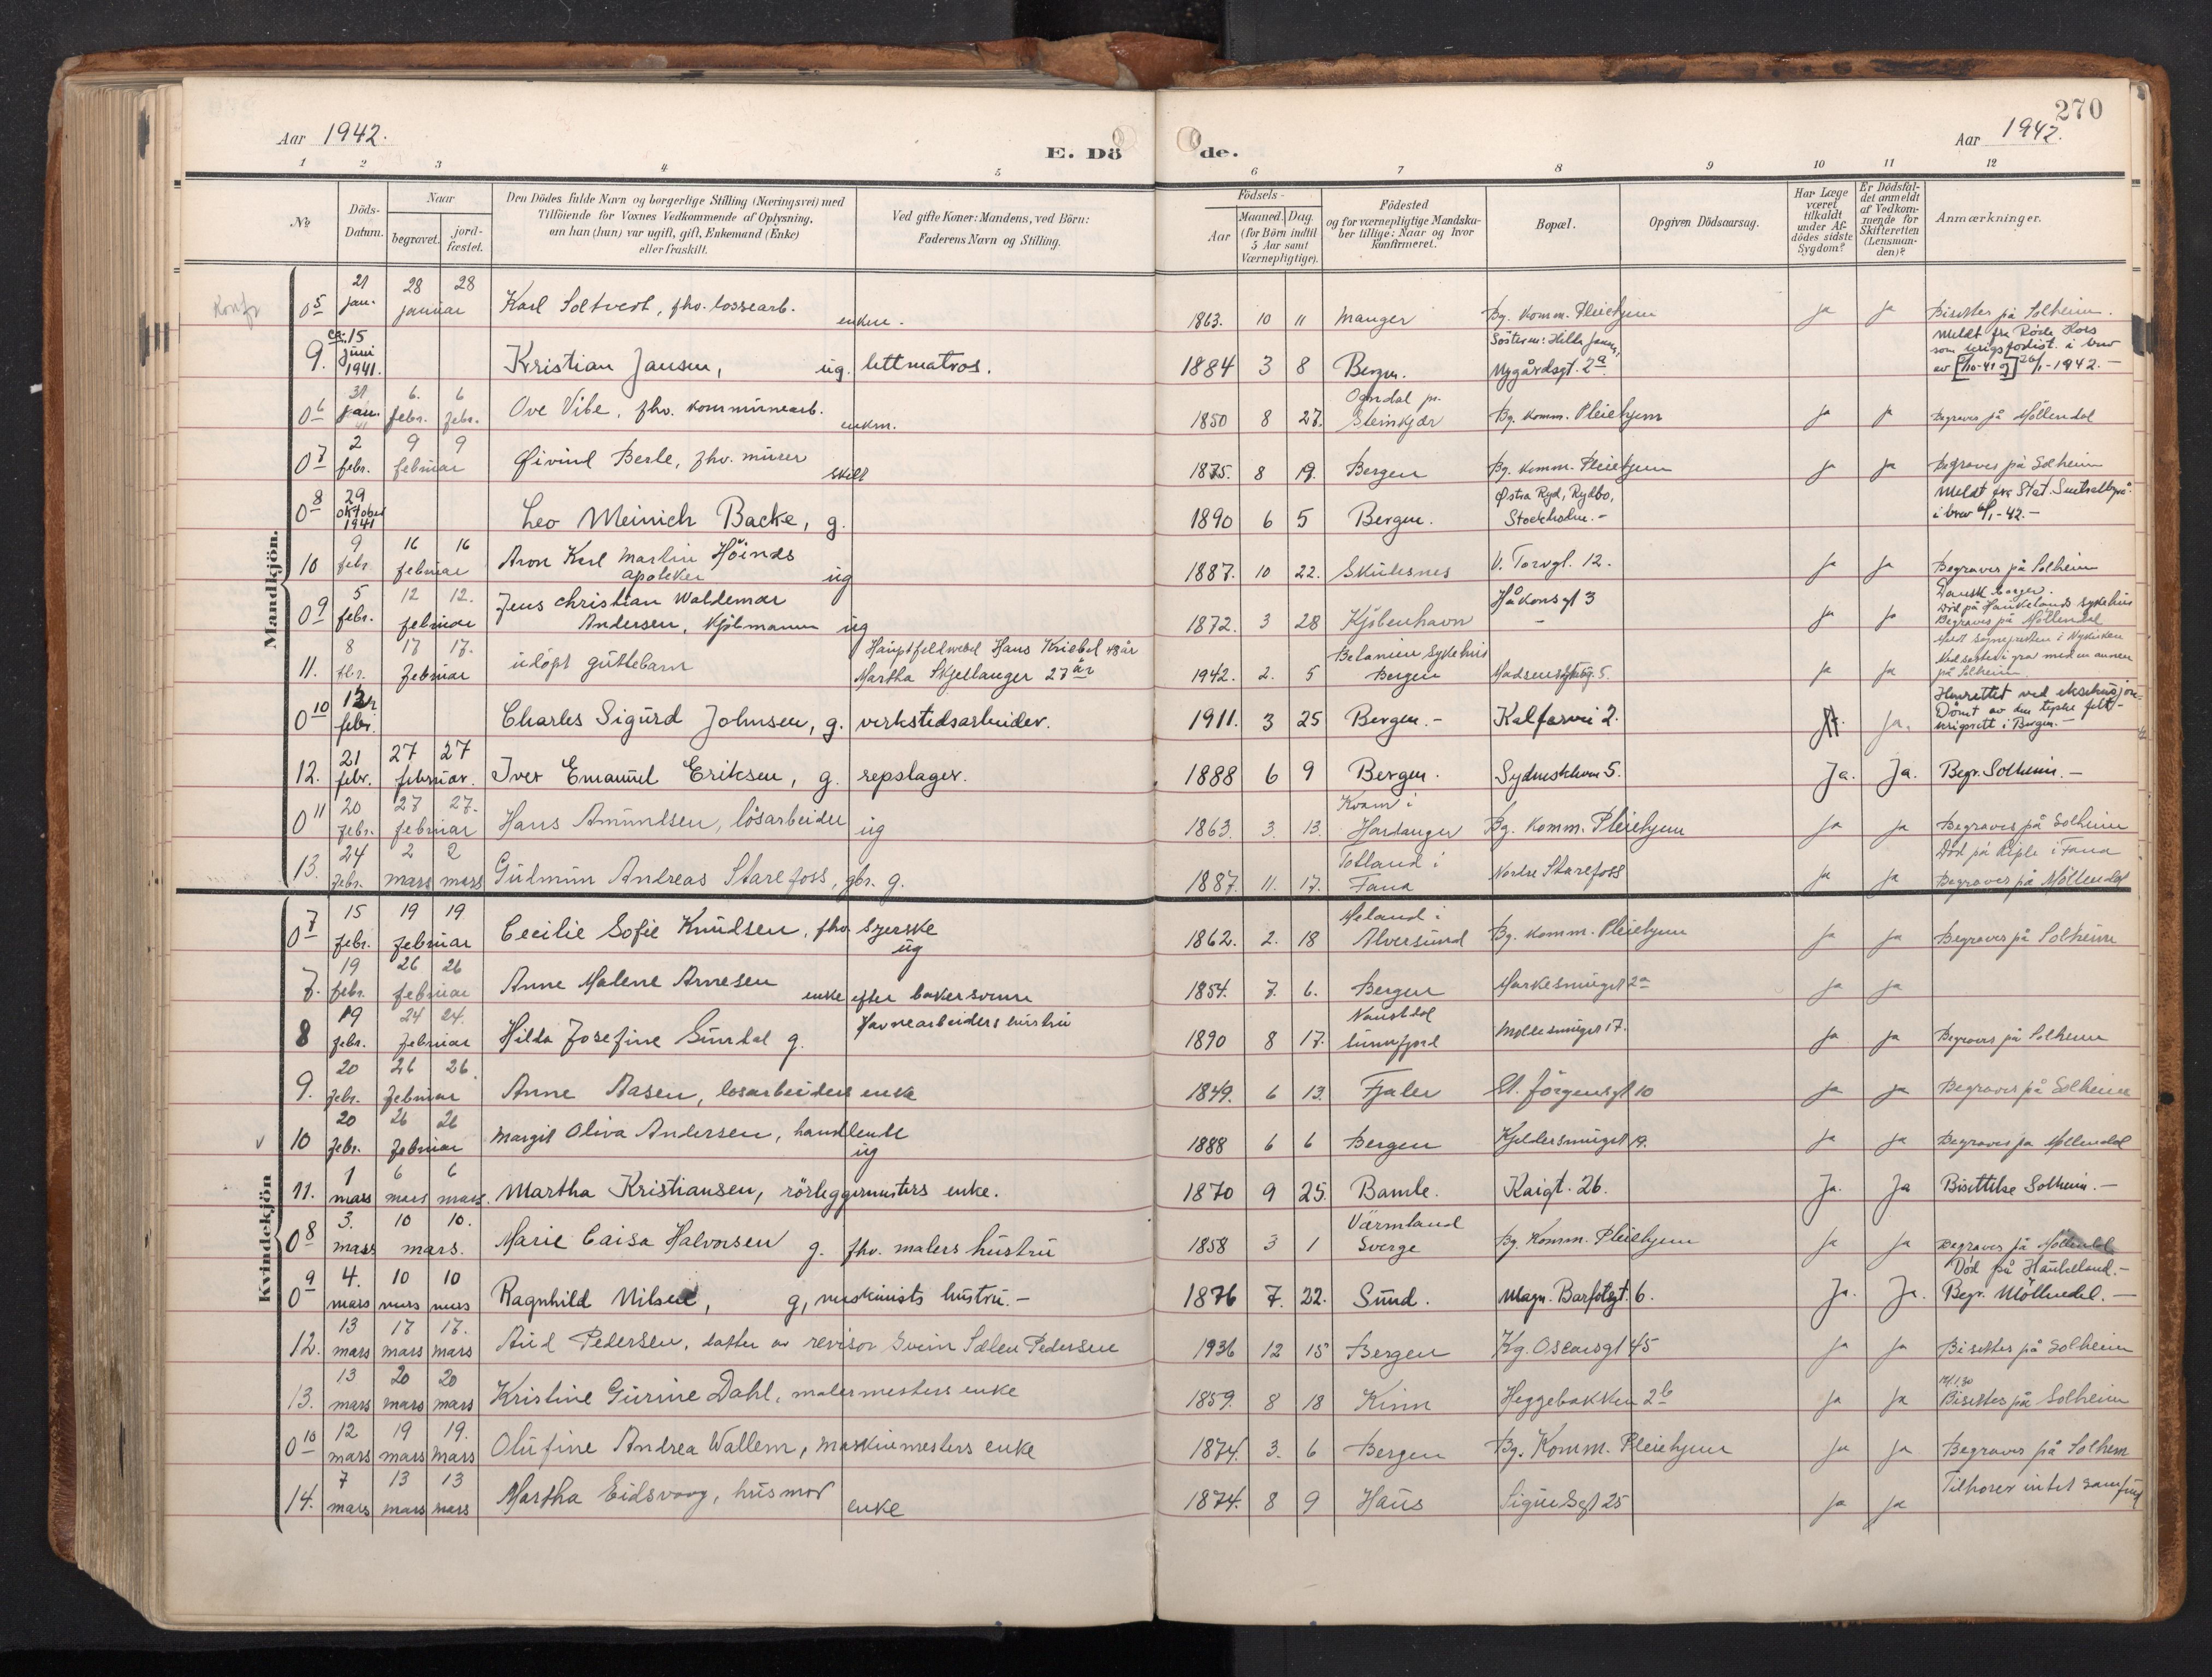 270
Aar 1942.
E. Dö
de.
Aar 1942.
1 2 3 4 5 6 7 8 9 10 11 12
No
Döds-Datum.
Naar
begravet.
jord-fæstet.
Den Dödes fulde Navn og borgerlige Stilling (Næringsvei) med
Tilföiende for Voxnes Vedkommende af Oplysning,
om han (hun) var ugift, gift, Enkemand (Enke)
eller fraskilt.
Ved gifte Koner: Mandens, ved Börn:
Faderens Navn og Stilling.
Födsels-
Aar
Maaned. Dag.
(for Börn indtil
5 Aar samt
Værnepligtige).
Födested
og for værnepligtige Mandska-
ber tillige: Naar og hvor
konfirmeret.
Bopæl.
Opgiven Dödsaarsag.
Har Læge
været
tilkaldt
under Af-
dödes sidste
Sygdom?
Er Dödsfal-
det anmeldt
af Vedkom-
mende for
Skifteretten
(Lensman-
den)?
Anmærkninger.
Mandkjön.
05 21 jan. 28 28 januar Karl Soltvedt, fhv. lossearb. enkm. 1863. 10 11 Manger Bg. Komm. Pleiehjem ja ja Bisettes på Solheim.
9. ca. 15 juni 1941. Kristian Jansen, ug. lettmatros. 1884 3 8 Bergen. Nygårdsgt. 2a Meldt fra Röde Kors
06 31 jan. 6. 6 febr. febr. Ove Vibe, fhv. kommunearb. enkm. 1850 8 27. Ogndal pr. Steinkjær Bg. Komm. Pleiehjem ja ja Begraves på Möllendal
07 2 febr. 9 9 februar Øivind Berle, fhv. murer skilt 1875. 8 19. Bergen Bg. Komm. Pleiehjem ja ja Begraves på Solheim
08 29 oktober 1941 Leo Meinich Backe, g. 1890 6 5 Bergen. Østra Ryd, Rydbo, Stockholm.- i brev 6/1-42.-
10 9 febr. 16 16 februar Aron Karl Martin Höinds apoteker ug 1887. 10 22. Skudesnes V. Torvgt. 12. ja ja Begraves på Solheim
09 5 febr. 12 12. februar Jens Christian Waldemar Andersen, kjöbmann ug 1872. 3 28 Kjöbenhavn Håkonsgt 3 ja ja Dansk borger. Död på Haukelands sykehus Begraves på Möllendal
11. 8 fbr. 17 17. februar udöpt guttebarn Hauptfeldwebel Hans Kriebel 48 år Martha Skjellanger 27 år 1942. 2. 5 Betanien sykehus Bergen ja ja Nedsettes i grav med en annen på Solheim
010 12 febr. Charles Sigurd Johnsen, g. verkstedsarbeider. 1911. 3 25 Bergen.- Kalfarvei 2. ja. Henrettet ved eksekusjon. Dömt av den tyske felt-krigsrett i Bergen.-
12. 21 febr. 27 27 februar. Iver Emanuel Eriksen, g. repslager. 1888 6 9 Bergen. Sydneskleven 5. Ja. Ja. Begr. Solheim.-
011 20 febr. 27 27. februar Hans Amundsen, lösarbeider ug 1863. 3. 13. Kvam i Hardanger Bg. Komm. Pleiehjem ja ja Begraves på Solheim
13. 24 febr. 2 2 mars mars Gudmun Andreas Starefoss, gbr. g. 1887. 11. 17. Totland i Fana Nordre Starefoss ja ja Död på Riple i Fana Begraves på Möllendal
Kvindekjön
07 15 febr. 19 19 februar Cecilie Sofie Knudsen, fhv. syerske ug 1862. 2. 18 Meland i Alversund Bg. Komm. Pleiehjem ja ja Begraves på Solheim
7. 19 febr. 26 26 februar Anne Malene Arnesen enke efter bakersvenn 1854. 7. 6. Bergen Markesmuget 2a ja ja
8 19 febr. 24 24. februar Hilda Josefine Sundal g. Havnearbeiders hustru 1890 8 17. Naustdal Sunnfjord Möllesmuget 17. ja ja Begraves på Solheim
9. 20 febr. 26 26. februar Anne Aasen, losarbeiders enke 1849. 6 13. Fjaler St. Jörgensgt 10 ja ja Begraves på Solheim
v 10 20 febr. 26 26 februar Margit Oliva Andersen, handlende ug 1888 6 6 Bergen Kjeldersmuget 19. ja ja Begraves på Möllendal
11. 1 mars 6 6 mars mars Martha Kristiansen, rörleggermesters enke. 1870 9 25. Bamle. Kaigt. 26. Ja. Ja Bisettelse Solheim.-
08 3. mars 10 10. mars. Marie Caisa Halvorsen g. fhv. malers hustru 1858 3 1 Värmland Sverge Bg. Komm. Pleiehjem ja ja Begraves på Möllendal
09 4. mars 10 10 mars mars Ragnhild Nilsen, g, maskinists hustru.- 1876 7. 22. Sund. Magn. Barfotsgt. 6. Ja. Ja. Död på Haukeland.- Begr. Möllendal.-
12. 13 mars 17 17. mars mars Aud Pedersen, datter av revisor Svein Sælen Pedersen 1936 12 15 Bergen Kg. Oscarsgt 45 ja ja Bisettes på Solheim
13. 13 mars 20 20 mars mars Kristine Gurine Dahl, malermesters enke 1859. 8 18 Kinn Heggebakken 2b ja ja Bisettes på Solheim
010 12 mars 19 19. mars mars Olufine Andrea Wallem, maskinmesters enke 1874. 3. 6 Bergen Bg. Komm. Pleiehjem ja ja Begraves på Solheim
14. 7 mars 13 13 mars mars Martha Eidsvaag, husmor enke 1874. 8 9 Haus Sigurdsgt 25 ja ja Tilhorer intet samfund